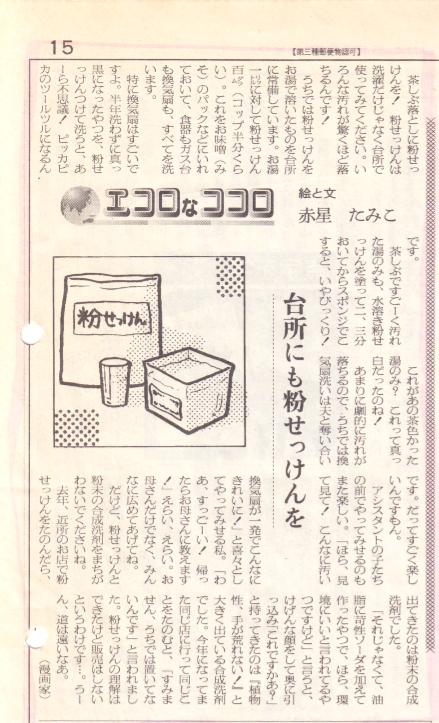 15
【第三種郵便物認可】
茶しぶ落としに粉せっ
けんを! 粉せっけんは
洗濯だけじゃなく台所で
使ってみてください。い
ろんな汚れが驚くほど落
ちるんです!
うちでは粉せっけんを
お湯で溶いたものを台所
に常備しています。お湯
一㍑に対して粉せっけん
百㌘(コップ半分くら
い)。これをお味噌(み
そ)のパックなどにいれ
ておいて、食器もガス台
も換気扇も、すべてを洗
います。
特に換気扇はすごいで
すよ。半年洗わずに真っ
黒になったやつを、粉せ
っけんつけて洗うと、あ
ーら不思議! ピッカピ
カのツールツルになるん
エコロなココロ
絵と文
赤星 たみこ
台所にも粉せっけんを
粉せっけん
です。
茶しぶですごーく汚れ
た湯のみも、水溶き粉せ
っけんを塗って二、三分
おいてからスポンジでこ
すると、いやびっくり!
これがあの茶色かった
湯のみ? これって真っ
白だったのね!
あまりに劇的に汚れが
落ちるので、うちでは換
気扇洗いは夫と奪い合い
です。だってすごく楽し
いんですもん。
アシスタントの子たち
の前でやってみせるのも
また楽しい。「ほら、見
て見て! こんなに汚い
換気扇が一発でこんなに
きれいに!」と喜々とし
てやってみせる私。「わ
あ、すっごーい! 帰っ
たらお母さんに教えます
!」えらい、えらい。お
母さんだけでなく、みん
なに広めてあげてね。
だけど、粉せっけんと
粉末の合成洗剤をまちが
わないでくださいね。
去年、近所のお店で粉
せっけんをたのんだら、
出てきたのは粉末の合成
洗剤でした。
「それじゃなくて、油
脂に苛性ソーダを加えて
作ったやつで、ほら、環
境にいいと言われてるや
つですけど」と言うと、
けげんな顔をして奥に引
っ込み「これですかあ?」
と持ってきたのは『植物
性、手が荒れない!』と
大きく出ている合成洗剤
でした。今年になってま
た同じ店に行って同じこ
とをたのむと、「すみま
せん、うちでは置いてな
いんです」と言われまし
た。粉せっけんの理解は
できたけど販売はしない
というわけです…。うー
ん、道は遠いなあ。
(漫画家)